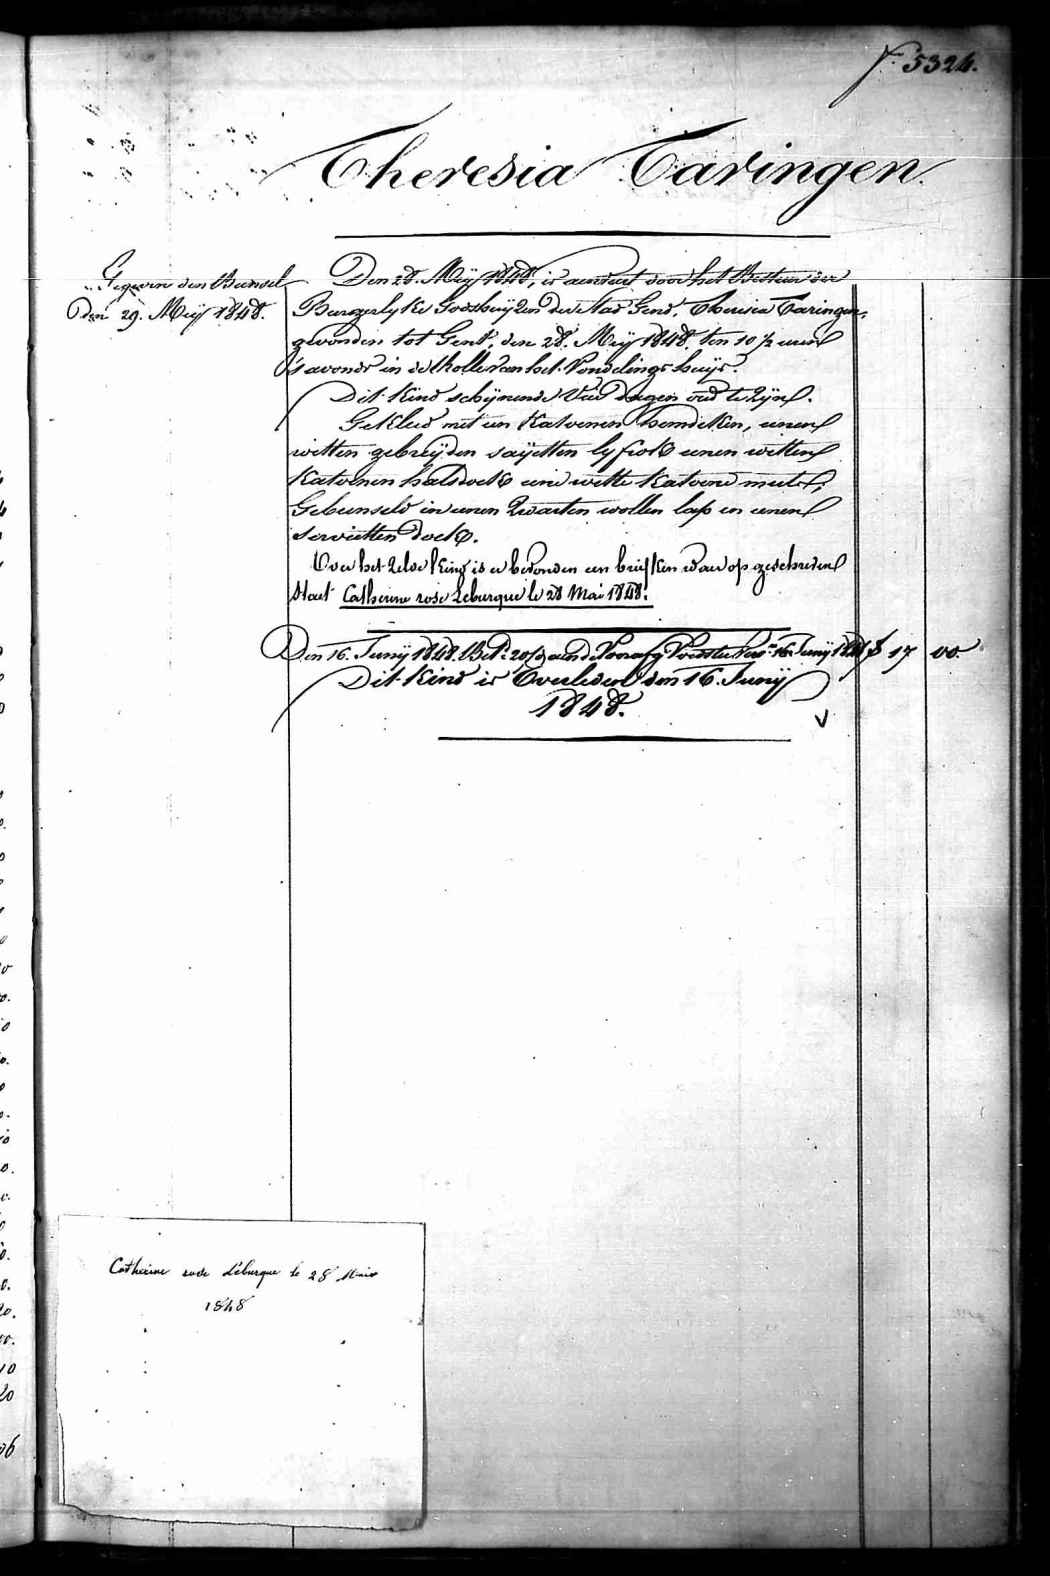 f. 5324.
Theresia Taringen.
Gegeven den Bunsel
den 29. Meÿ 1848.
Den 28. Meÿ 1848, is aenveert door het Bestuer der
Burgerlyke Godshuÿzen der Stad Gend, Theresia Taringen,
gevonden tot Gent, den 28. Meÿ 1848. ten 10 1/2 uren
's avonds in de Rolle van het Vondelings huÿs.
Dit Kind schÿnende dagen oud te zÿn.
Gekleed met een Katoenen hemdeken, eenen
witten gebreÿden saÿetten lyfrok eenen witten
Katoenen halsdoek eene witte Katoene muts,
Gebunseld in eenen zwarten wollen lap en eenen
servietten doek.
Over het zelve Kind is er bevonden een briefken waer op geschreven
staet Catherine rose Leburque le 28 Mai 1848.
Den 16. Junÿ 1848. Bet: aende Voorafg. Voedster 16. Junÿ 1848 f 17 00
Dit Kind is Overleden den 16. Junÿ
1848.
Catherine rose Leburque le 28 Mais
1848